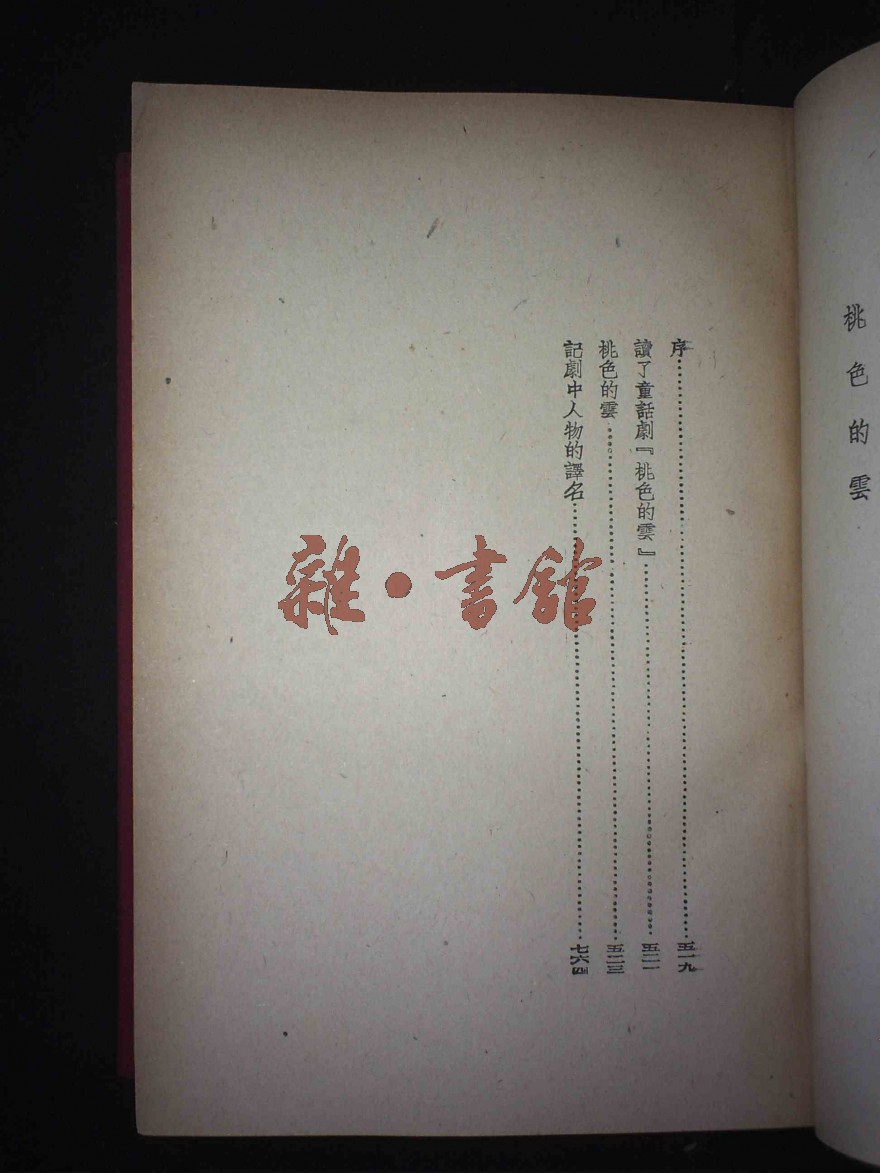 桃色的雲
序……五一九
讀了童話劇『桃色的雲』……五二一
桃色的雲……五二三
記劇中人物的譯名……七六四
雜·書館